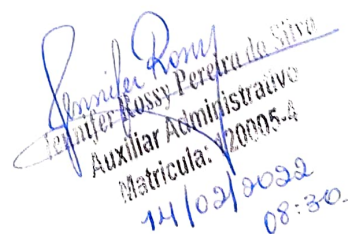 Jennifer Rossy
Jennifer Rossy Pereira da Silva
Auxiliar Administrativo
Matricula: 20005-4
14/02/2022
08:30.